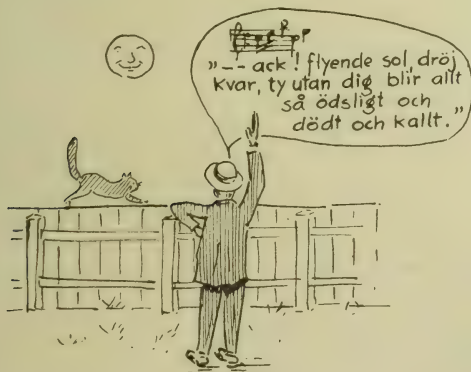 „--- ack! flyende sol, dröj
kvar, ty utan dig blir allt
så ödsligt och
dödt och kallt.”